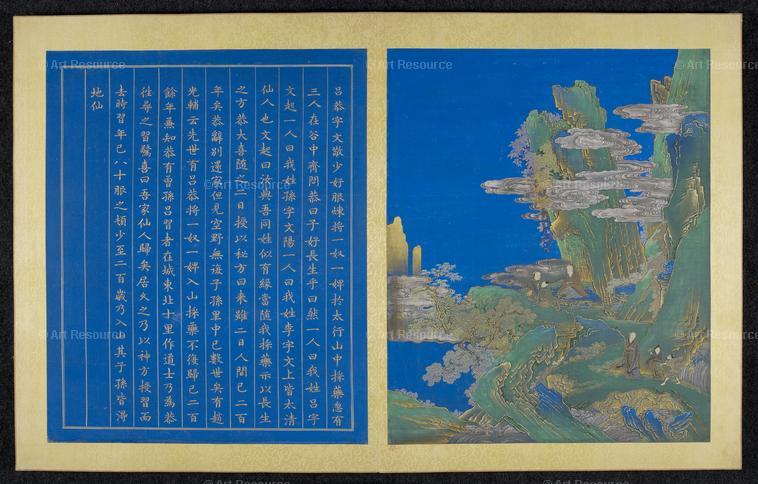 呂恭字文敬少好服煉將一奴一婢於太行山中採藥忽有
三人在谷中齊問恭曰子好長生乎曰然一人曰我姓呂字
文起一人曰我姓孫字文陽一人曰我姓李字文上皆太清
仙人也文起曰汝與吾同姓似有緣當隨我採藥示以長生
之方恭大喜隨之二日授以秘方曰來雖二日人間已二百
年矣恭辭別還家但見空野無復子孫里中已數世矣有趙
光輔云先世有呂恭將一奴一婢入山採藥不復歸已二百
餘年無知恭有曾孫呂習者在城東北十里作道士乃為恭
往尋之習驚喜曰吾家仙人歸矣居久之乃以神方授習而
去時習年已八十服之頓少至二百歲乃入山其子孫皆得
地仙
© Art Resource